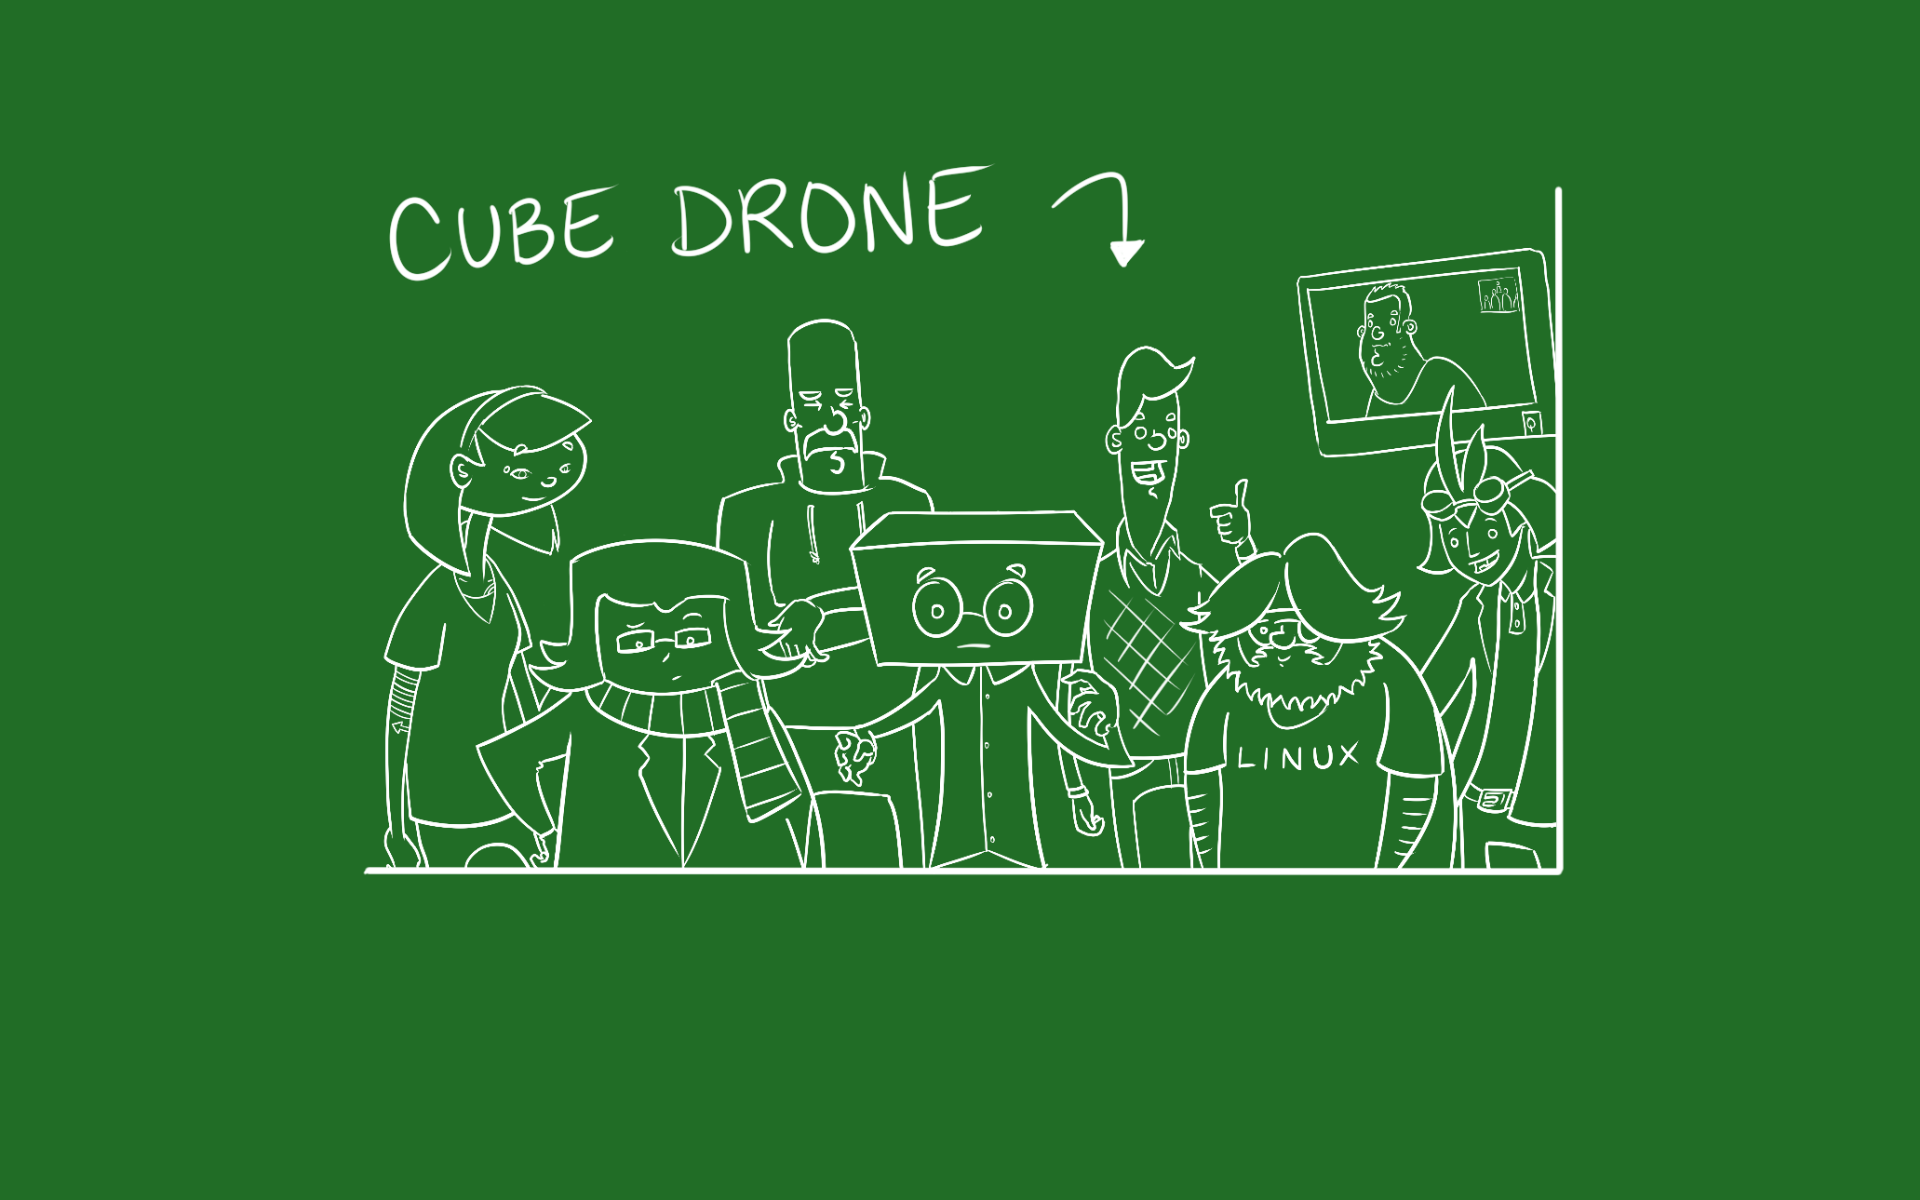 CUBE DRONE
LINUX